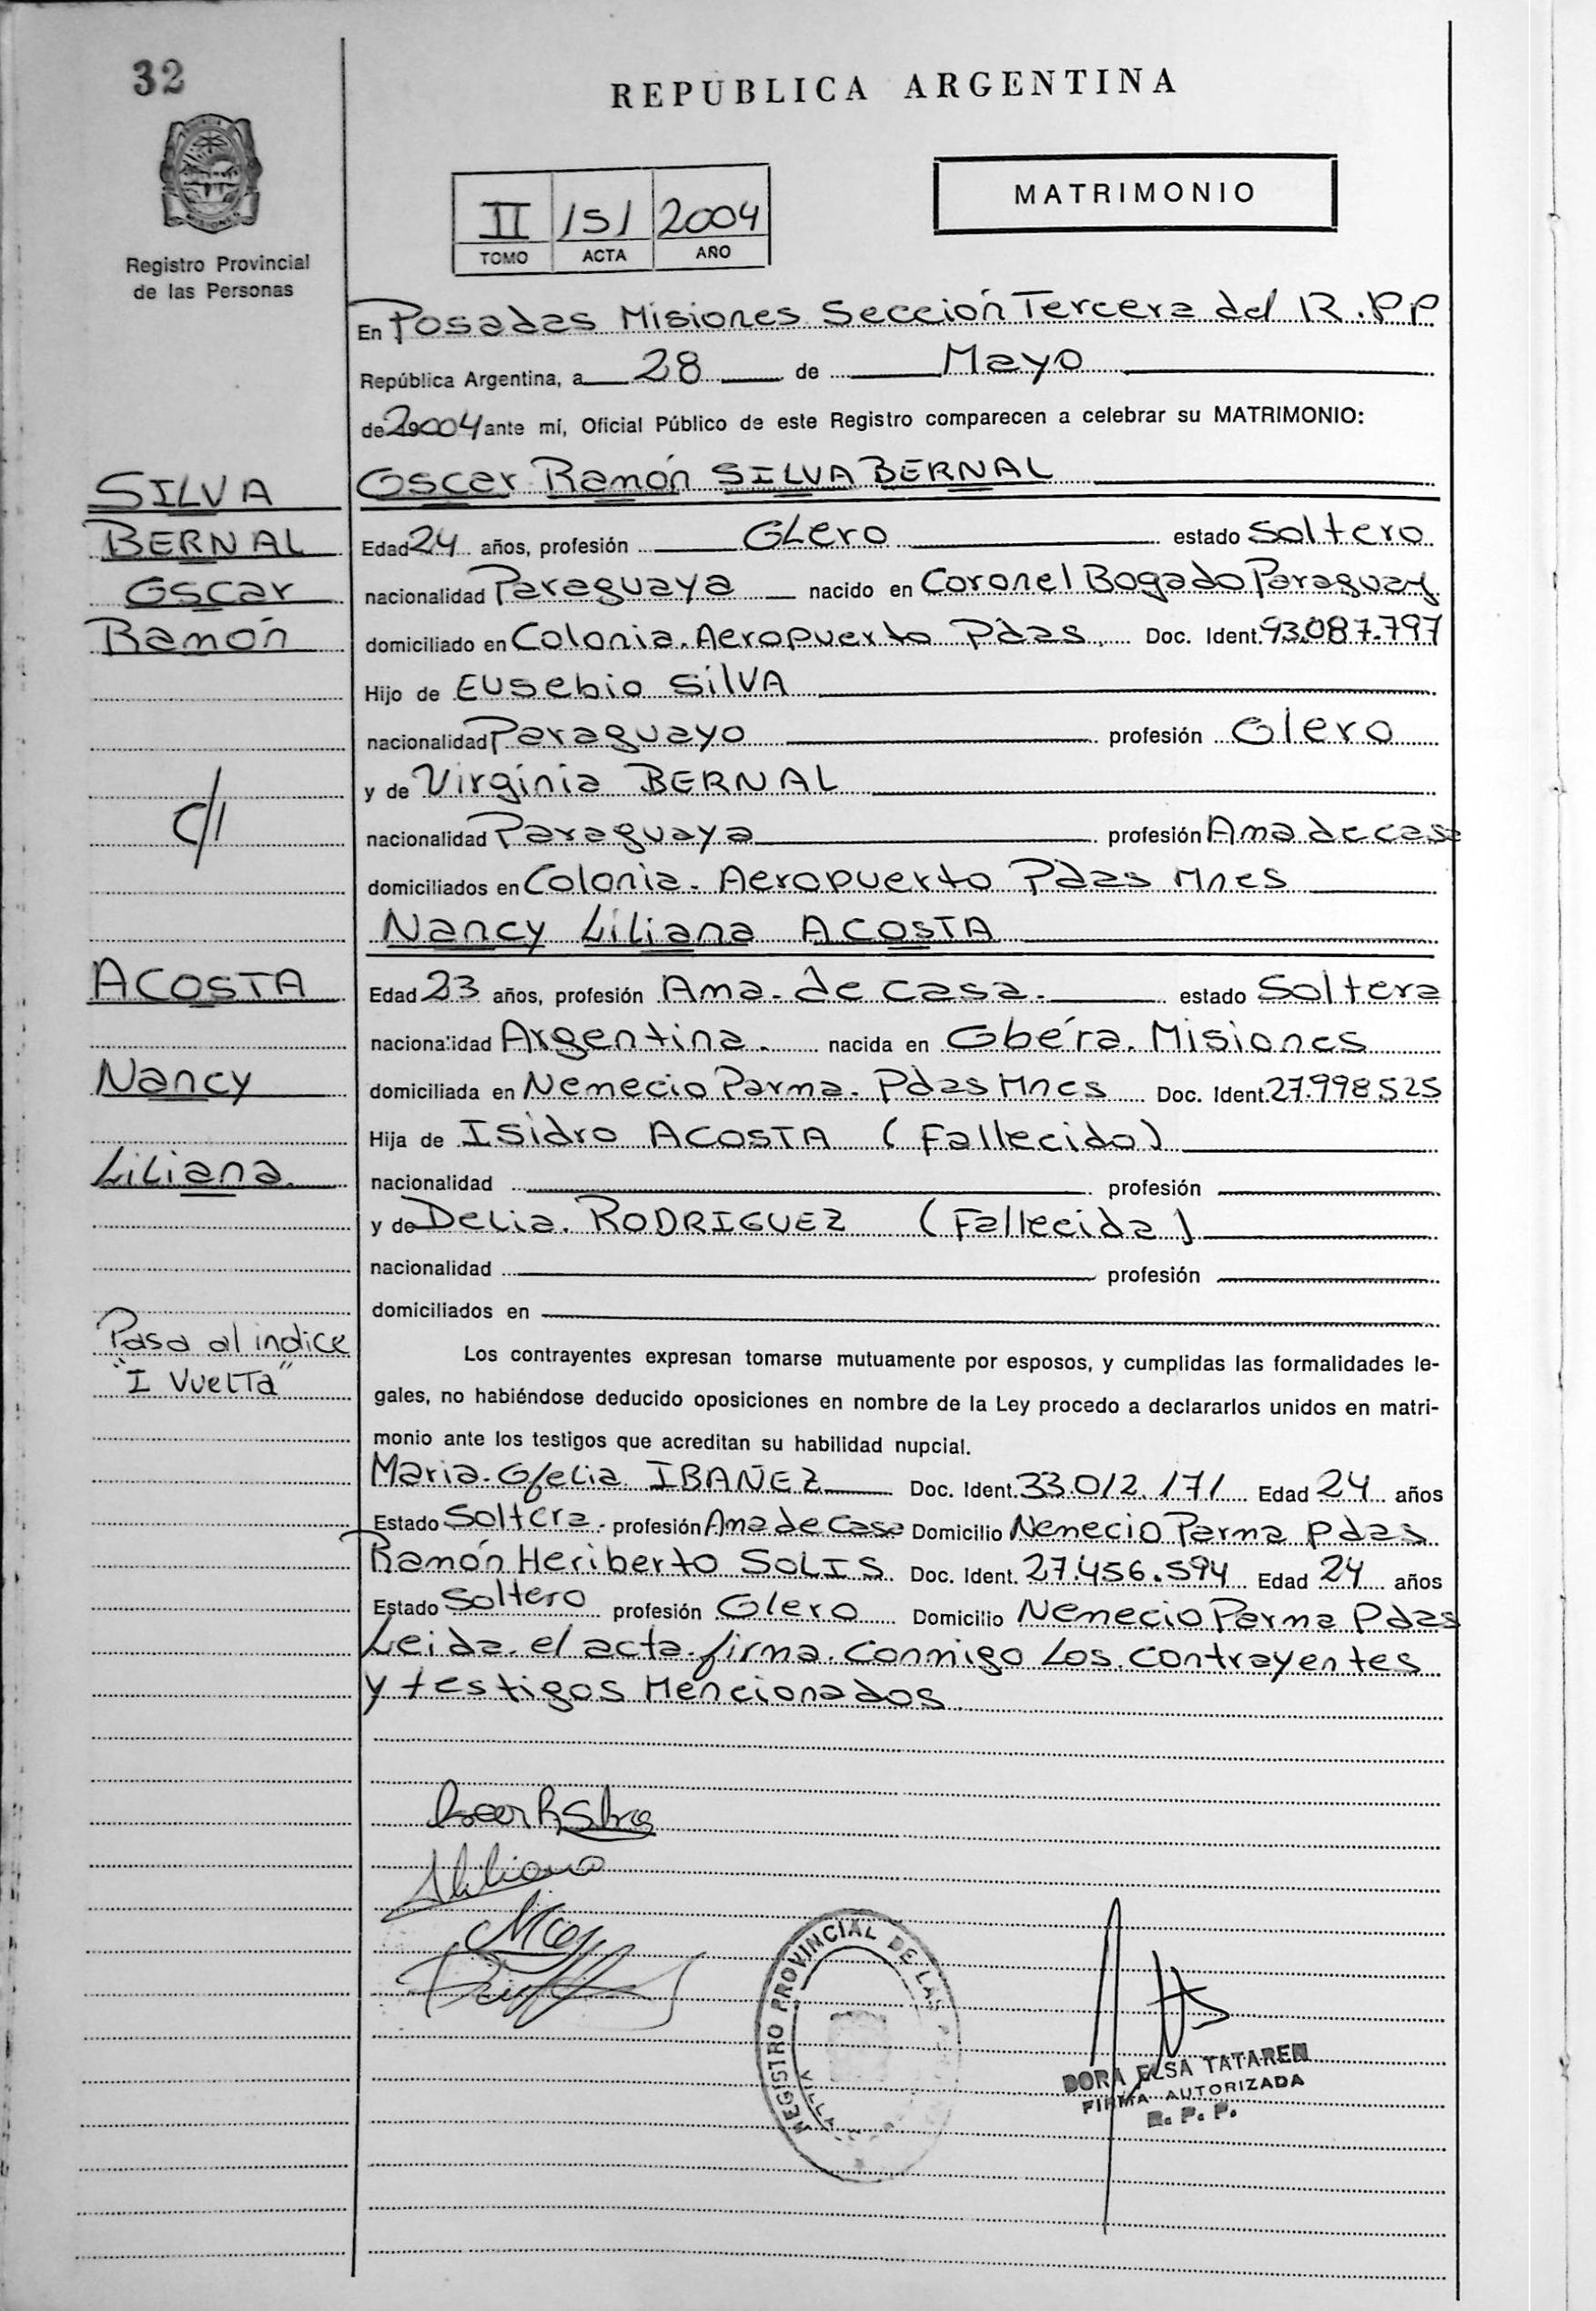 32
REPUBLICA ARGENTINA
MATRIMONIO
II 151 2004
TOMO ACTA AÑO
Registro Provincial
de las Personas
En Posadas Misiones Sección Tercera del R.P.P
República Argentina, a 28 de Mayo
de 2004 ante mí, Oficial Público de este Registro comparecen a celebrar su MATRIMONIO:
SILVA
BERNAL
Oscar
Ramón
c/1
Oscar Ramón SILVA BERNAL
Edad 24 años, profesión Olero estado Soltero
nacionalidad Paraguaya nacido en Coronel Bogado Paraguay
domiciliado en Colonia. Aeropuerto Pdas. Doc. Ident. 93.087.797
Hijo de Eusebio SilVA
nacionalidad Paraguayo profesión Olero
y de Virginia BERNAL
nacionalidad Paraguaya profesión Ama de casa
domiciliados en Colonia. Aeropuerto Pdas Mnes
ACOSTA
Nancy
Liliana.
Nancy Liliana ACOSTA
Edad 23 años, profesión Ama. de casa. estado Soltera
nacionalidad Argentina. nacida en Obéra. Misiones
domiciliada en Nemecio Parma. Pdas Mnes Doc. Ident. 27.998.525
Hija de Isidro ACOSTA (Fallecido)
nacionalidad profesión
y de Delia. RODRIGUEZ (Fallecida)
nacionalidad profesión
domiciliados en
Pasa al indice
"I VuelTa"
Los contrayentes expresan tomarse mutuamente por esposos, y cumplidas las formalidades le-
gales, no habiéndose deducido oposiciones en nombre de la Ley procedo a declararlos unidos en matri-
monio ante los testigos que acreditan su habilidad nupcial.
Maria. Ofelia. IBAÑEZ Doc. Ident. 33.012.171 Edad 24 años
Estado Soltera. profesión Ama de Casa Domicilio Nemecio Parma Pdas
Ramón Heriberto SOLIS Doc. Ident. 27.456.594 Edad 24 años
Estado Soltero profesión Olero Domicilio Nemecio Parma Pdas
Leida. el acta. firma. Conmigo Los. Contrayentes
y testigos Mencionados
REGISTRO PROVINCIAL DE LAS
VILLA
DORA ELSA TATAREN
FIRMA AUTORIZADA
R. P. P.